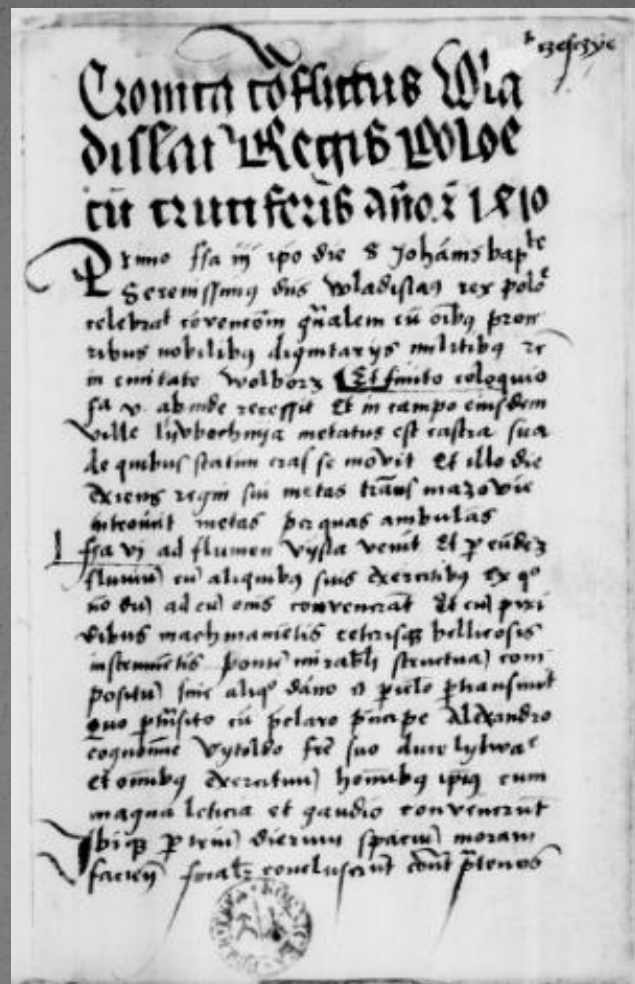 Cronica cōflictus Wla
dislai Regis Poloe
cū cruciferis año. ī 1410
Primo fʼia iij ipō die S Johānis bapte
Serenissimꝯ dns Wladislaꝯ rex poloe
celebrat cōvencōm gn̄alem cū oībꝫ proce
ribus nobilibꝫ dignitarijs militibꝫ
in civitate wolborz Et finito coloquio
fa v. abinde recessit Et in campo eiusdem
ville lyvbochnija metatus est castra sua
de quibus statim cras se movit Et illo die
exiens regni sui metas trāns mazovie
metas per quas ambulās
fʼia vj ad flumen vysla venit Et p eūdeꝫ
fluviū cū aliquibꝫ suis exercitibꝫ ex qo
nō dū ad eū om̄s convenerāt Et cū pixi
dibus machinamētis ceterisqꝫ bellicosis
instrumētis ponte mirabli structura com
positū sine aliqo dāno pertransivit
Quo pertn̄sito cū pclaro pncipe Alexandro
cognomine vytoldo fre suo duce lytwae
et omībꝫ exercituū homībꝫ ipiꝯ cum
magna leticia et gaudio convenerūt
Ibiqꝫ p triū dierum spaciū moram
facien̄ finalr concluserūt cont